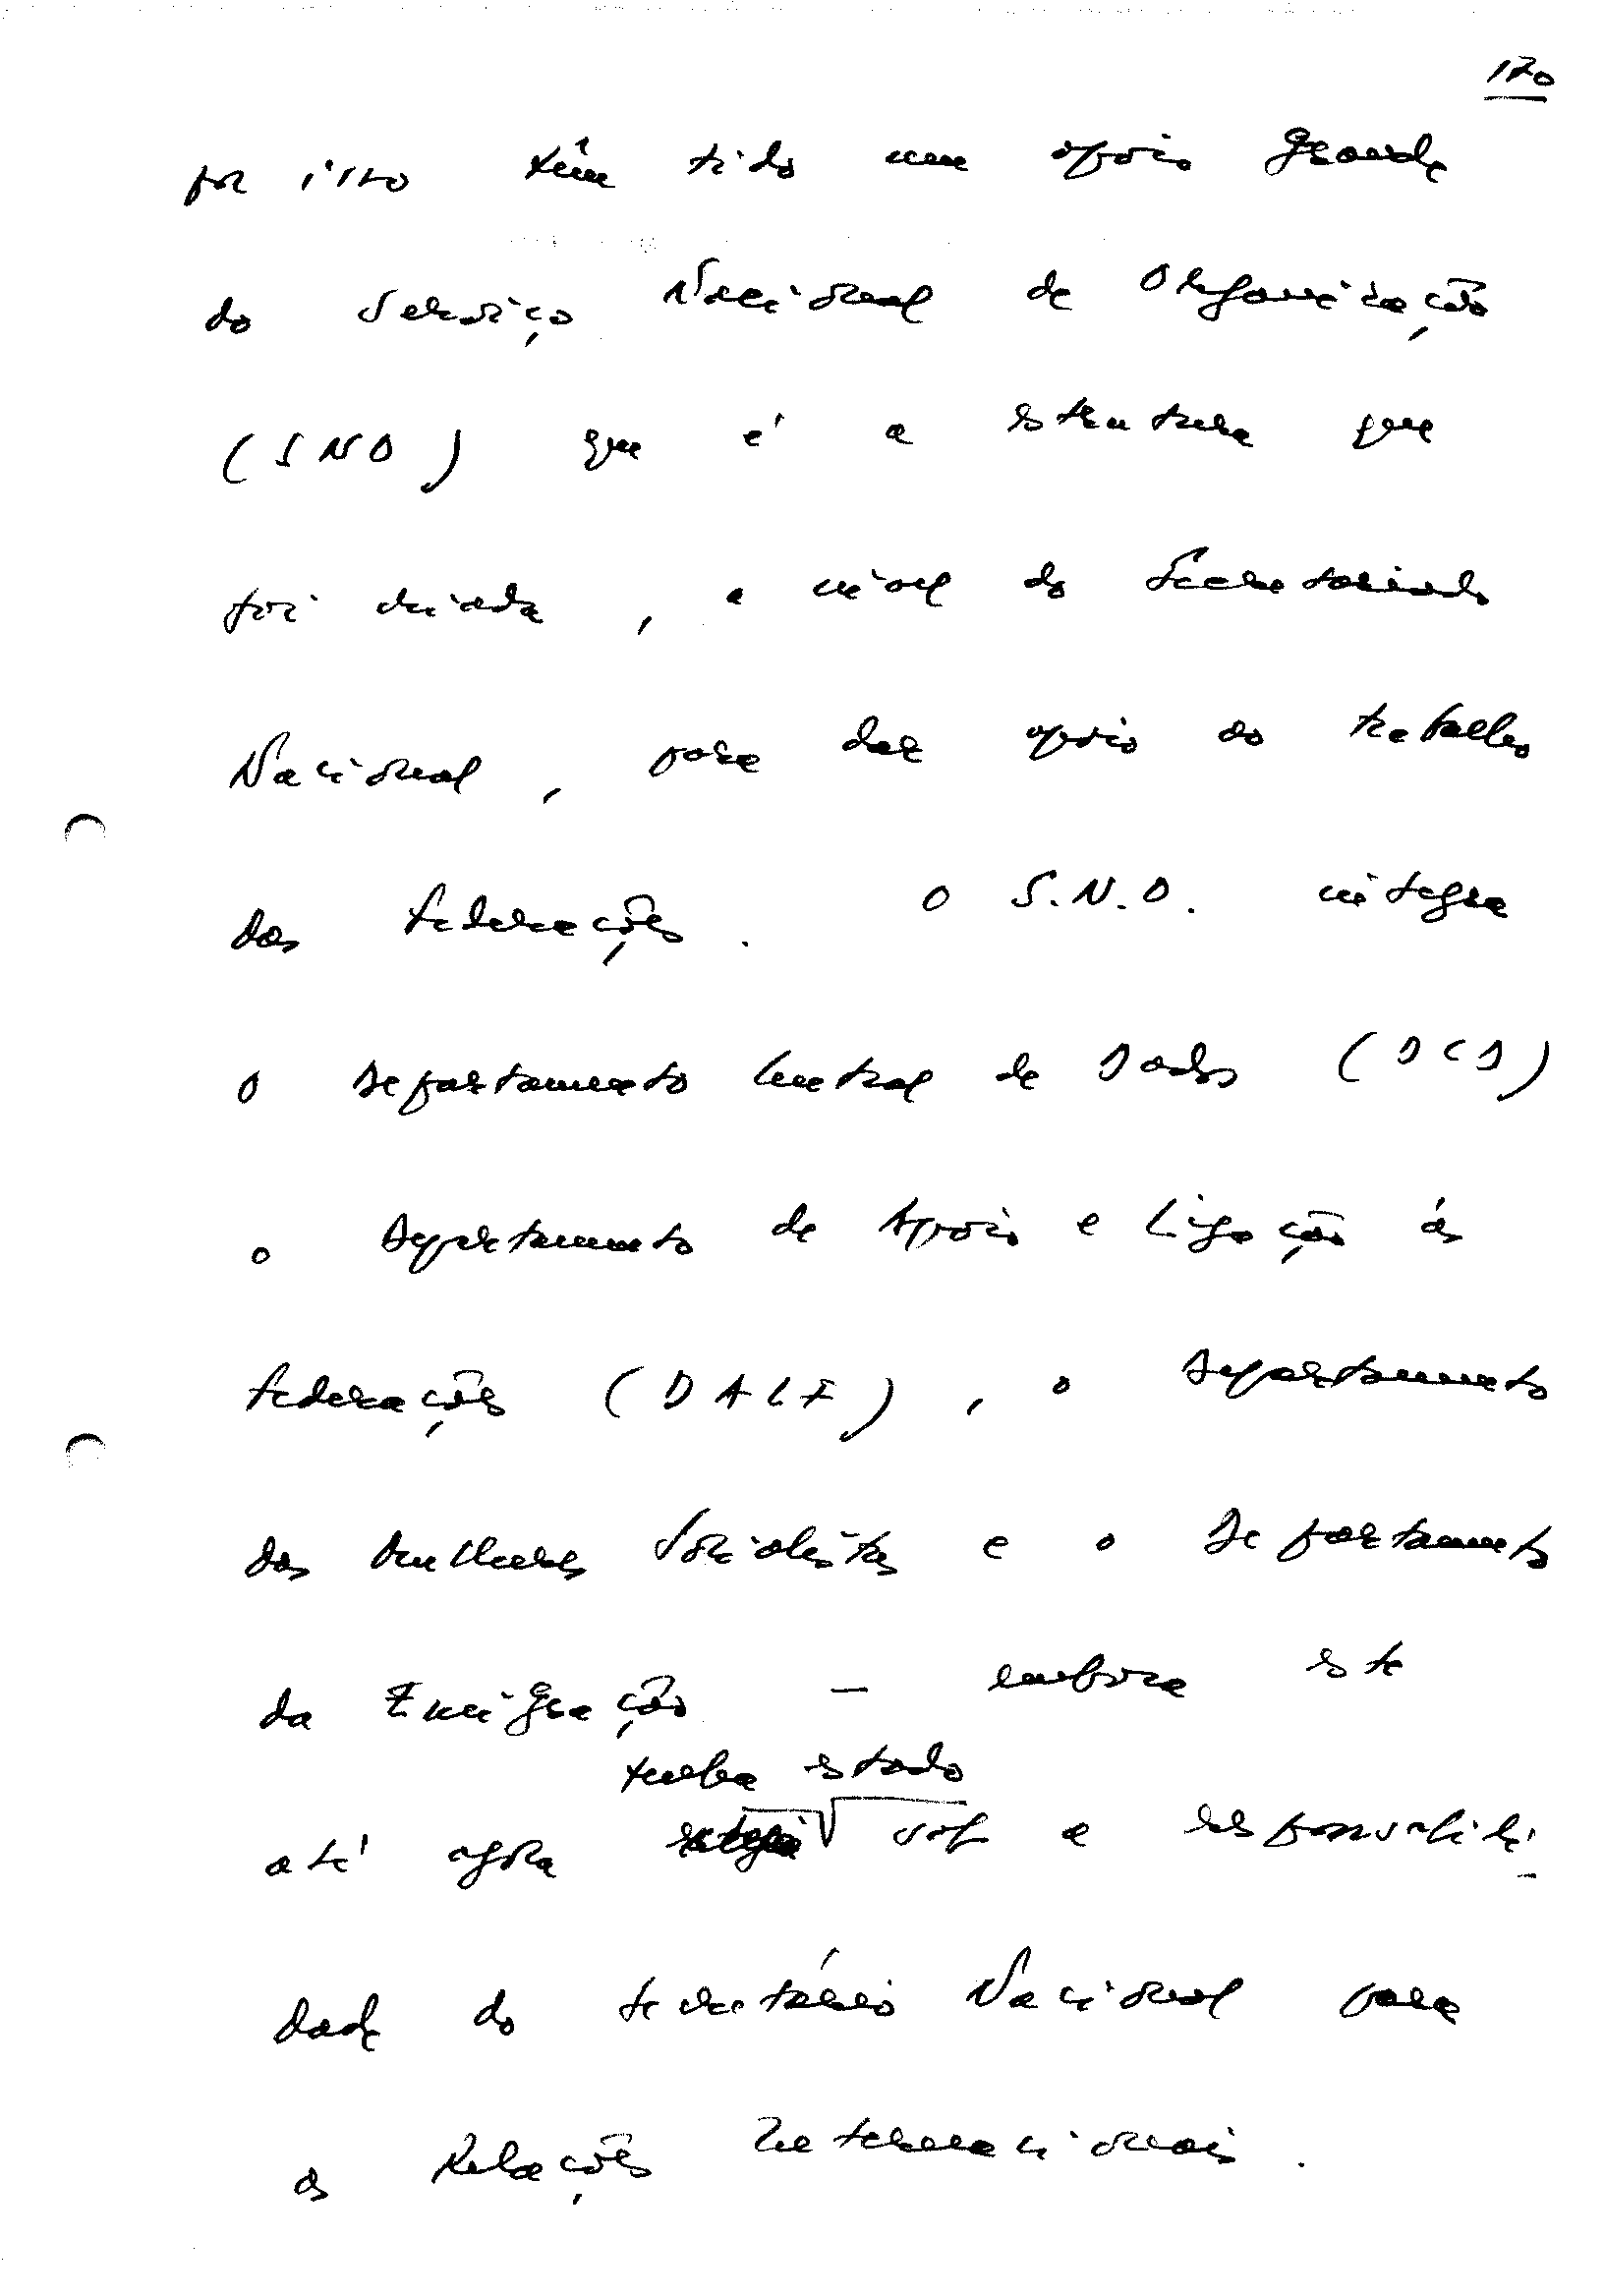 120
por isso têm tido um apoio grande
do Serviço Nacional de Organização
(SNO) que é a estrutura que
foi criada, a nível do Secretariado
Nacional, para dar apoio ao trabalho
das Federações. O S.N.O. integra
o Departamento Central de Dados (DCD)
o Departamento de Apoio e Ligação às
Federações (DALF), o Departamento
das Mulheres Socialistas e o Departamento
da Emigração - embora este
tenha estado
até agora sob a responsabili-
dade do Secretário Nacional para
as Relações Internacionais.